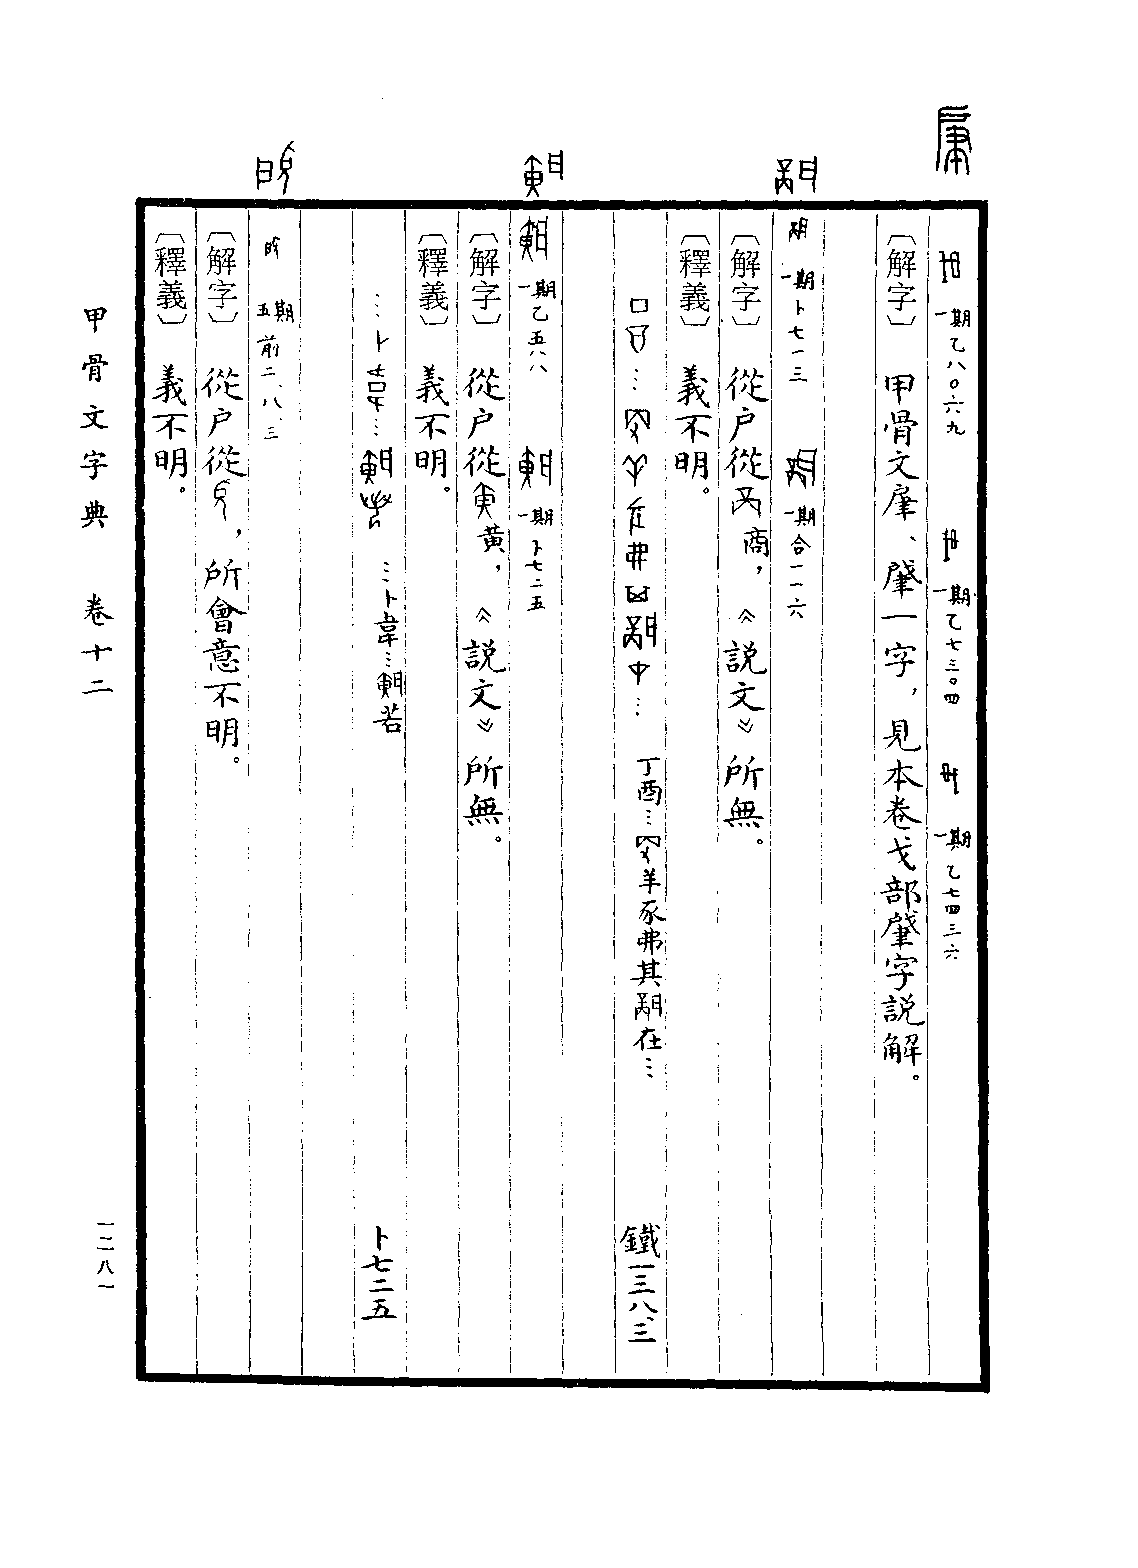 肁
一期 乙八〇六九 一期 乙七三〇四 一期 乙七四三六
〔解字〕 甲骨文肁、肇一字，見本卷戈部肇字說解。
一期 卜七一三 一期 合一一六
〔解字〕 從户從商，《說文》所無。
〔釋義〕 義不明。
丁酉…羊豕弗其在… 鐵一三八、三
一期 乙五八八 一期 卜七二五
〔解字〕 從户從黄，《說文》所無。
〔釋義〕 義不明。
…卜韋…若 卜七二五
五期 前二、八、三
〔解字〕 從户從，所會意不明。
〔釋義〕 義不明。
甲骨文字典 卷十二
一二八一